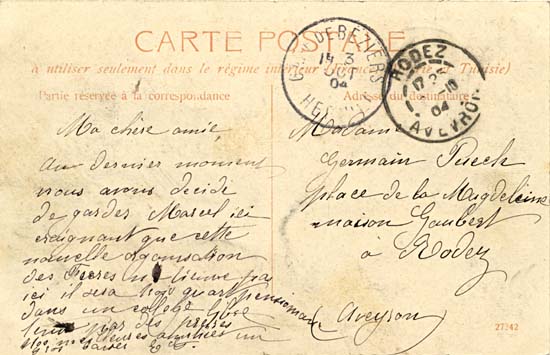 CARTE POSTALE
à utiliser seulement dans le régime intérieur Tunisie)
Partie réservée à la correspondance
Adresse du destinataire
GARE DE BEZIERS
14 3
OCT
04
HERAULT
RODEZ
04
AVEYRON
Ma chère amie,
Au dernier moment
nous avons décidé
de garder Marcel ici
craignant que cette
nouvelle organisation
des Frères ne tienne pas
ici il sera trois quart pensionnaire
dans un collège libre
tenu par des prêtres
Madame
Germain Puech
place de la Magdeleine
maison Gaubert
à Rodez
(Aveyron)
27242